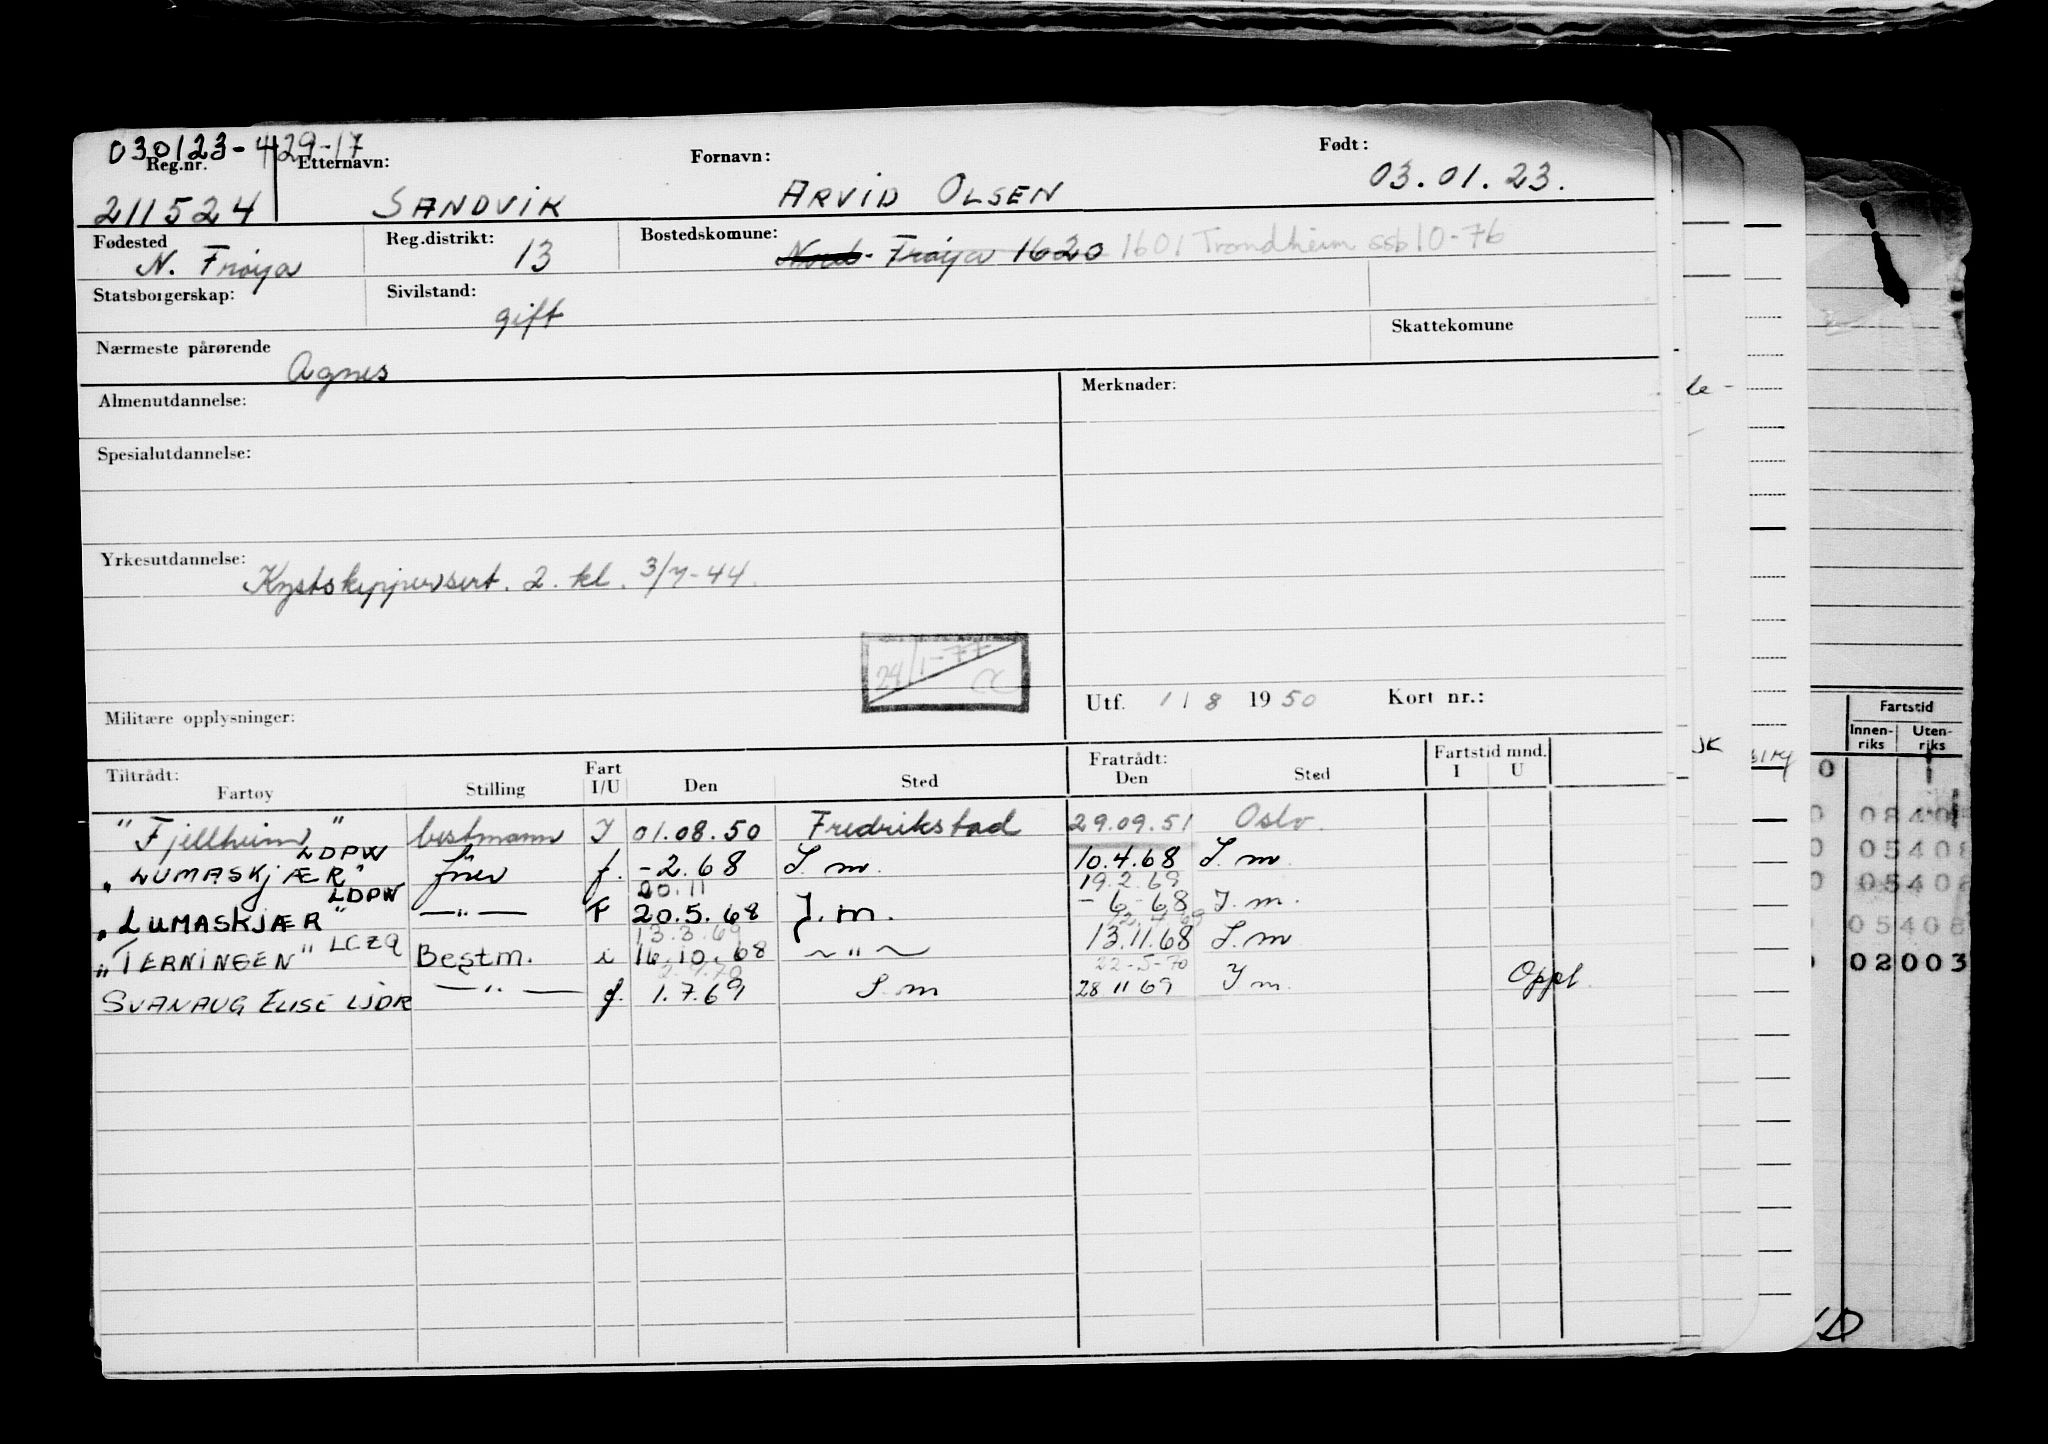 030123-42917
Reg.nr. Etternavn: Fornavn: Født:
211524 SANDVIK ARVID OLSEN 03.01.23.
Fødested Reg.distrikt: Bostedskomune:
N. Frøya 13 Nord-Frøya 1620 1601 Trondheim ssb 10-76
Statsborgerskap: Sivilstand:
gift
Skattekomune
Nærmeste pårørende
Agnes
Almenutdannelse: Merknader:
Spesialutdannelse:
Yrkesutdannelse:
Kystskippersert. 2. kl. 3/7-44.
24/1-77
Militære opplysninger: Utf. 1/8 1950 Kort nr.:
Tiltrådt: Fart Fratrådt: Fartstid mnd.
Fartøy Stilling I/U Den Sted Den Sted I U
"Fjellheim" bestmann I 01.08.50 Fredrikstad 29.09.51 Oslo.
LDPW
"LUMASKJÆR" fører f. -2.68 S.m. 10.4.68 S.m.
20.11 19.2.69
LDPW
"LUMASKJÆR" —"— F 20.5.68 J.m. -6-68 I.m.
13.3.69 12.4.69
"TERNINGEN" LCZQ Bestm. i 16.10.68 ~"~ 13.11.68 S.m
2.4.70 22-5-70
SVANAUG ELISE LJDR —"— f. 1.7.69 S.m 28 11 69 I m. Oppl.
Fartstid
Innenriks Utenriks
08408
05408
05408
05408
02003